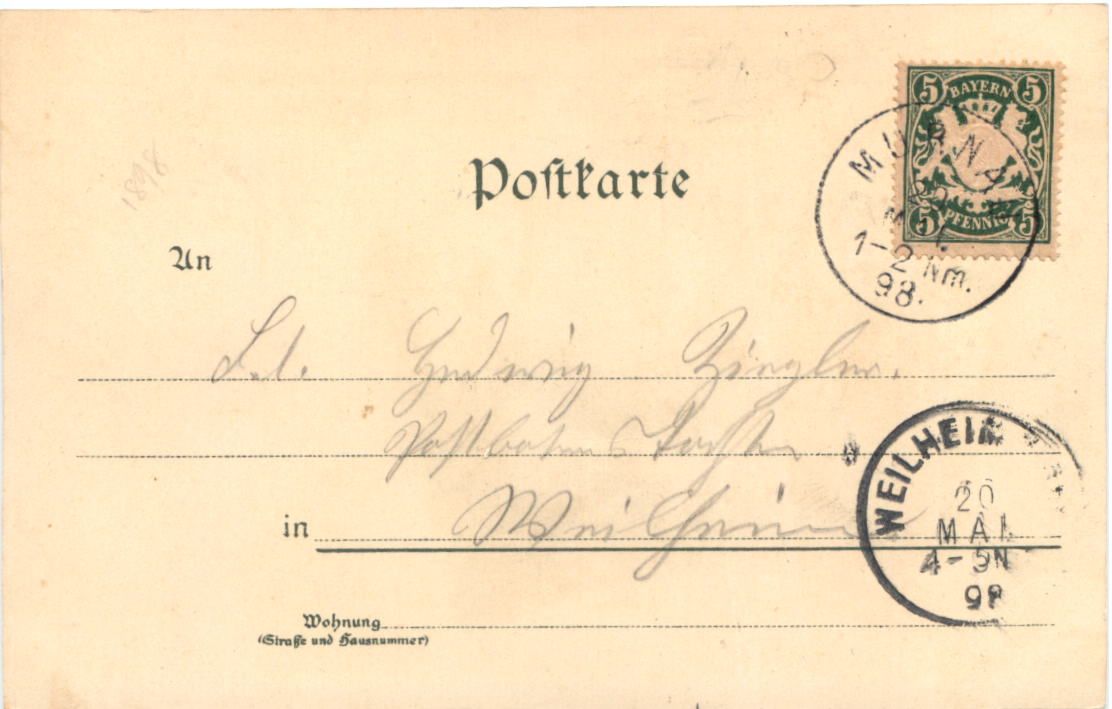 5 BAYERN 5
5 PFENNIG 5
MURNAU
20
MAI.
1-2 Nm.
98.
1898
Poſtkarte
An
Frl. Hedwig Ziegler.
Postboten Tochter
in Weilheim
WEILHEIM
20
MAI
4-5N
98
Wohnung
(Straße und Hausnummer)